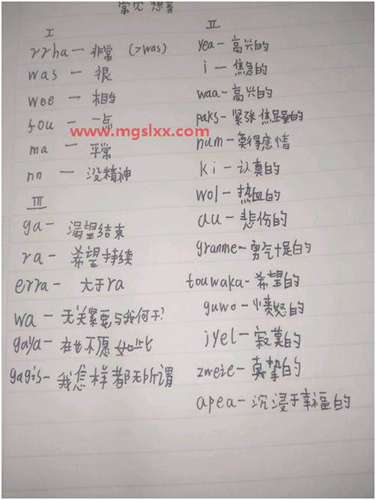 常见
I
rrha — 非常 (>was)
was — 很
wee — 相当
fou — 一点
ma — 平常
nn — 没精神
www.mgslxx.com
III
ga — 渴望结束
ra — 希望持续
erra — 大于ra
wa — 无关紧要与我何干?
gaya — 在也不愿如此
gagis — 我怎样都无所谓
II
yea — 高兴的
i — 焦急的
waa — 高兴的
paks — 紧张 的
num — 莫得感情
ki — 认真的
wol — 热血的
au — 悲伤的
granme — 勇气十足的
touwaka — 希望的
guwo — 愤怒的
jyel — 寂寞的
zweie — 真挚的
apea — 沉浸于幸福的